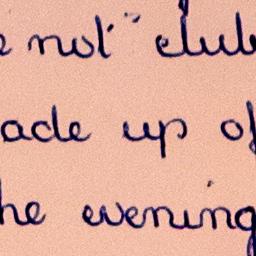 not "club
ade up of
he evening